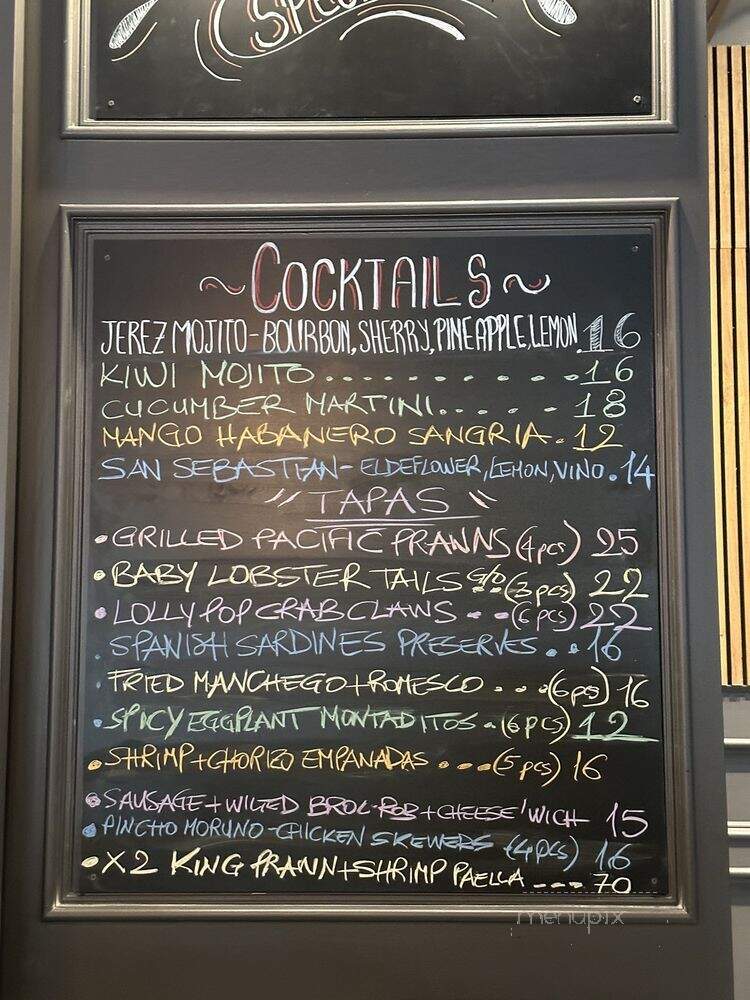 ~COCKTAILS~
JEREZ MOJITO-BOURBON, SHERRY, PINEAPPLE, LEMON. 16
KIWI MOJITO.........16
CUCUMBER MARTINI.... . - 18
MANGO HABANERO SANGRIA . 12
SAN SEBASTIAN- ELDEFLOWER, LEMON, VINO . 14
" TAPAS "
•GRILLED PACIFIC PRANNS (4pcs) 25
•BABY LOBSTER TAILS (3pcs) 22
•LOLLYPOP CRAB CLAWS - - (6pcs) 22
.SPANISH SARDINES PRESERVES . . 16
.FRIED MANCHEGO+ROMESCO . . . (6pcs) 16
•SPICY EGGPLANT MONTADITOS - (6pcs) 12
•SHRIMP+CHORIZO EMPANADAS . . . (5pcs) 16
•SAUSAGE+WILTED BROC-ROB+CHEESE'WICH 15
•PINCHO MORUNO-CHICKEN SKEWERS (4pcs) 16
•X2 KING PRANN+SHRIMP PAELLA --- 70
menupix